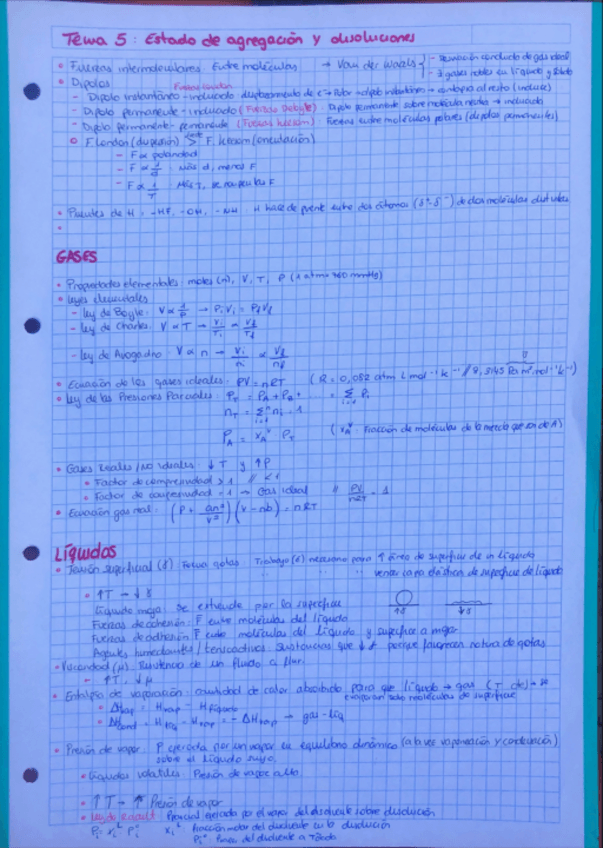 Tema 5: Estado de agregación y disoluciones
• Fuerzas intermoleculares: Entre moléculas → Van der Waals { - desviación conducta de gas ideal
- ∃ gases nobles en líquido y sólido
• Dipolos Fuerzas London
- Dipolo instantáneo - inducido: desplazamiento de e⁻ → Polar → dipolo instantáneo → contagia al resto (induce)
- Dipolo permanente - inducido (Fuerzas Debye): Dipolo permanente sobre molécula neutra → inducido
- Dipolo permanente - permanente (Fuerzas keesom): Fuerzas entre moléculas polares (dipolos permanentes)
○ F London (dispersión) > F. keesom (orientación)
- F ∝ polaridad
- F ∝ 1/d : Más d, menos F
- F ∝ 1/T Más T, se rompen las F
• Puentes de H: -HF, -OH, -NH H hace de puente entre dos átomos (δ⁺ δ⁻) de dos moléculas distintas
•
GASES
• Propiedades elementales: moles (n), V, T, P (1 atm = 760 mmHg)
• Leyes elementales
- Ley de Boyle: V ∝ 1/P → PᵢVᵢ = PfVf
- Ley de Charles: V ∝ T → Vᵢ/Tᵢ ∝ Vf/Tf
- Ley de Avogadro: V ∝ n → Vᵢ/nᵢ ∝ Vf/nf
• Ecuación de los gases ideales: PV = nRT (R = 0,082 atm L mol⁻¹ k⁻¹ // 8,3145 Pa m³ mol⁻¹ k⁻¹)
• Ley de las Presiones Parciales: P_T = P_A + P_B + ... = Σ Pᵢ
n_T = Σ nᵢ = 1
P_A = x_A^v P_T (x_A^v: Fracción de moléculas de la mezcla que son de A)
• Gases Reales / No ideales: ↓T y ↑P
• Factor de compresividad > 1 // < 1
• Factor de compresividad = 1 → Gas ideal // PV/nRT = 1
• Ecuación gas real: (P + an²/V²)(V - nb) = nRT
LÍQUIDOS
• Tensión superficial (γ): Forma gotas Trabajo (E) necesario para ↑ área de superficie de un líquido
" " " vencer capa elástica de superficie de líquido
• ↑T → ↓γ
Líquido moja: se extiende por la superficie ↑γ ↓γ
Fuerzas de cohesión: F entre moléculas del líquido
Fuerzas de adhesión: F entre moléculas del líquido y superficie a mojar
Agentes humectantes / tensoactivos: Sustancias que ↓γ porque favorecen rotura de gotas
• Viscosidad (μ): Tendencia de un fluido a fluir.
- ↑T, ↓μ
• Entalpía de vaporización: cantidad de calor absorbido para que líquido → gas (T cte) → se evaporan solo moléculas de superficie
• ΔHvap = Hvap - Hlíquido
• ΔHcond = Hliq - Hvap = - ΔHvap → gas - liq
• Presión de vapor: P ejercida por un vapor en equilibrio dinámico (a la vez vaporización y condensación) sobre el líquido suyo.
• Líquidos volátiles: Presión de vapor alta
• ↑T → ↑ Presión de vapor
• Ley de Raoult: P parcial ejercida por el vapor del disolvente sobre disolución
Pᵢ = xᵢᴸ Pᵢ° xᵢᴸ fracción molar del disolvente en la disolución